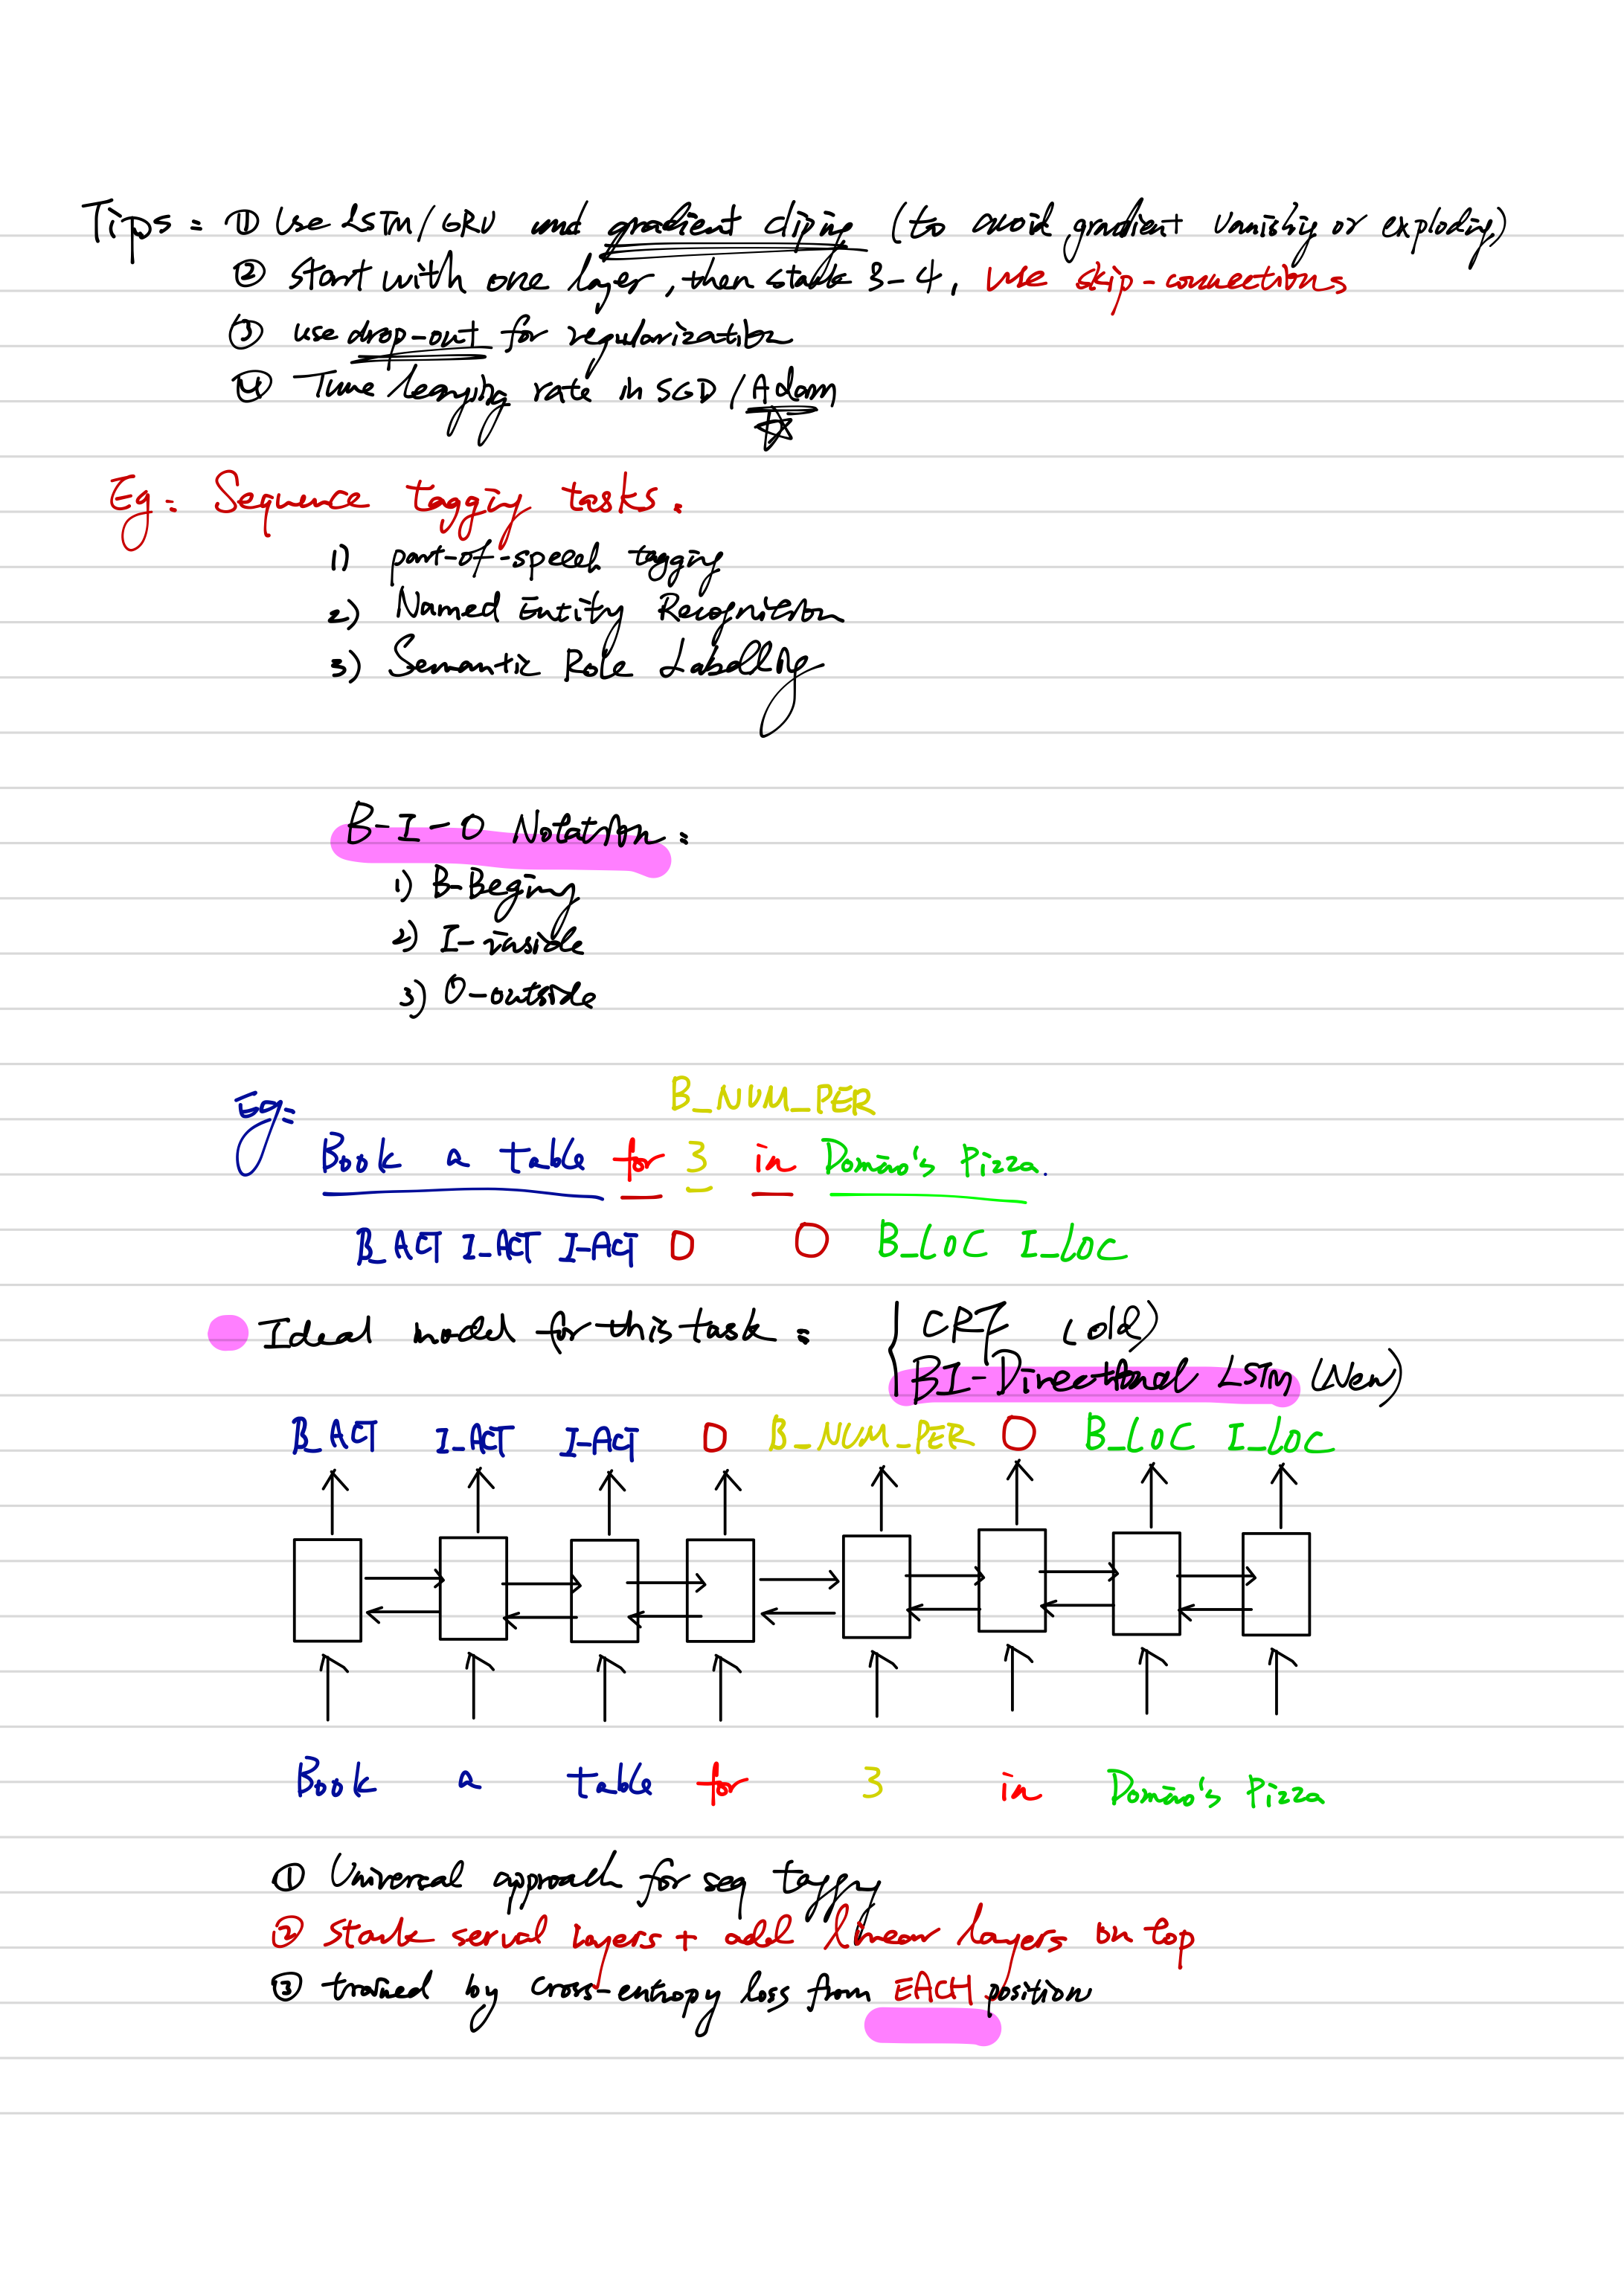 Tips: ① Use LSTM/GRU and gradient cliping (to avoid gradient vanishing or exploding)
② Start with one layer, then stack 3-4, use skip-connections
③ use drop-out for regularization
④ Tune learning rate in SGD/Adam
Eg: Sequence tagging tasks:
1) part-of-speech tagging
2) Named Entity Recognition
3) Semantic Role Labelling
B-I-O Notation:
1) B-Beging
2) I-inside
3) O-outside
B_NUM_PER
Eg:
Book a table for 3 in Domino's Pizza.
B_ACT I_ACT I-ACT O O B_LOC I_LOC
Ideal model for this task: CRF (old)
BI-Directional LSTM (New)
B_ACT I_ACT I-ACT O B_NUM_PER O B_LOC I_LOC
Book a table for 3 in Domino's Pizza
① Universal approach for seq tagging
② stack serval layers + add linear layers on top
③ trained by cross-entropy loss from EACH position